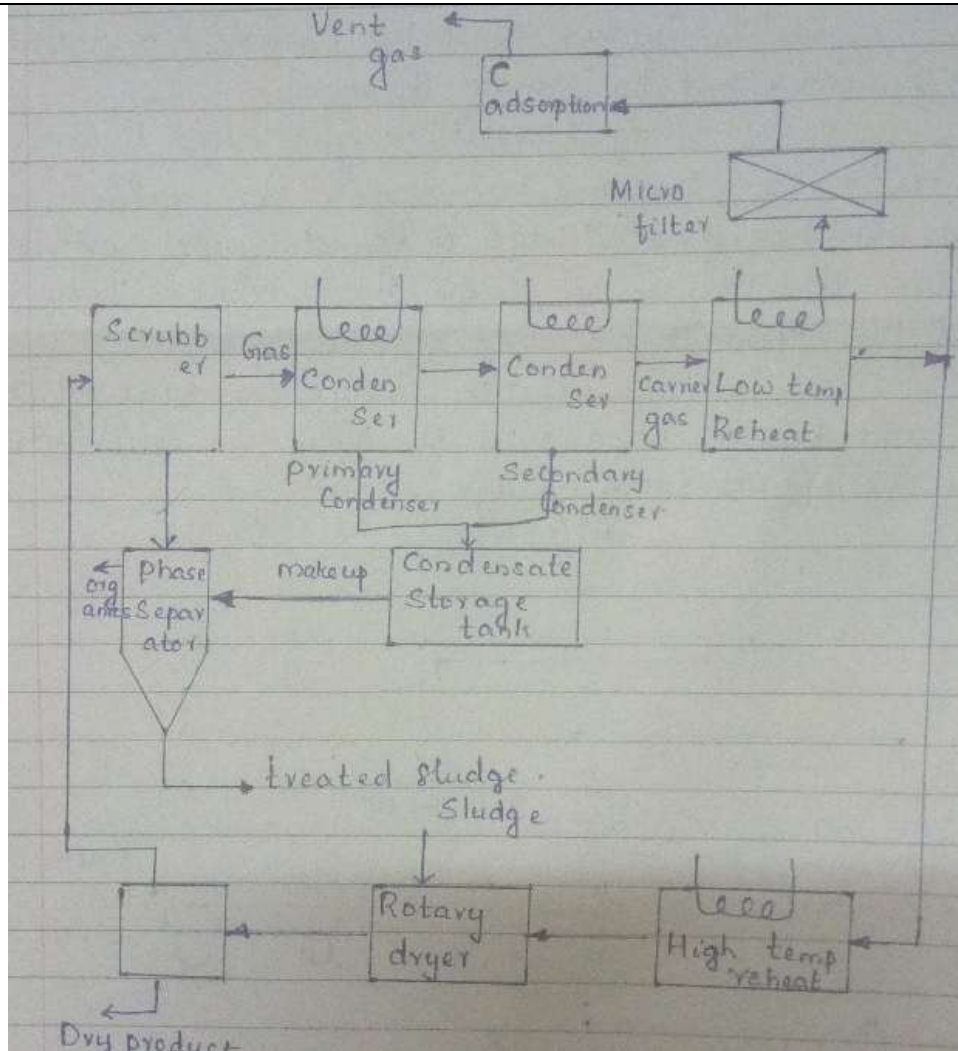 Vent
gas
C
adsorption
Micro
filter
Scrubb
er
Gas
Conden
Ser
Conden
Ser
Carrier
gas
Low temp
Reheat
primary
Condenser
Secondary
Condenser
org
anics
phase
Separ
ator
makeup
Condensate
Storage
tank
treated sludge.
Sludge
Rotary
dryer
High temp
reheat
Dry product